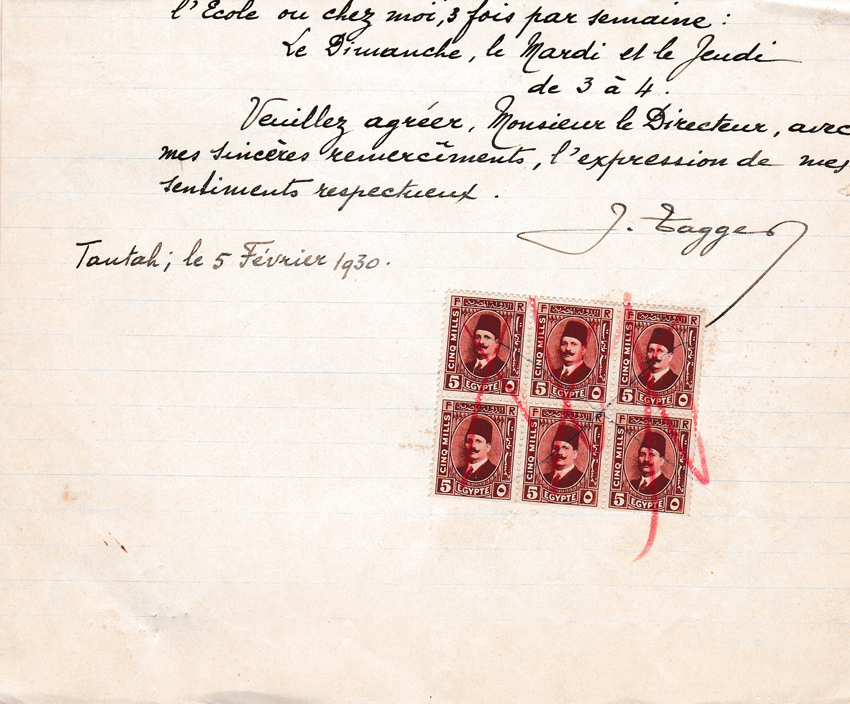 l'Ecole ou chez moi, 3 fois par semaine :
Le Dimanche, le Mardi et le Jeudi
de 3 à 4.
Veuillez agréer, Monsieur le Directeur, avec
mes sincères remercîments, l'expression de mes
sentiments respectueux.
J. Tagger
Tantah; le 5 Février 1930.
F R F R F R
CINQ MILLS CINQ MILLS CINQ MILLS
5 EGYPTE ٥ 5 EGYPTE ٥ 5 EGYPTE ٥
F R F R F R
CINQ MILLS CINQ MILLS CINQ MILLS
5 EGYPTE ٥ 5 EGYPTE ٥ 5 EGYPTE ٥